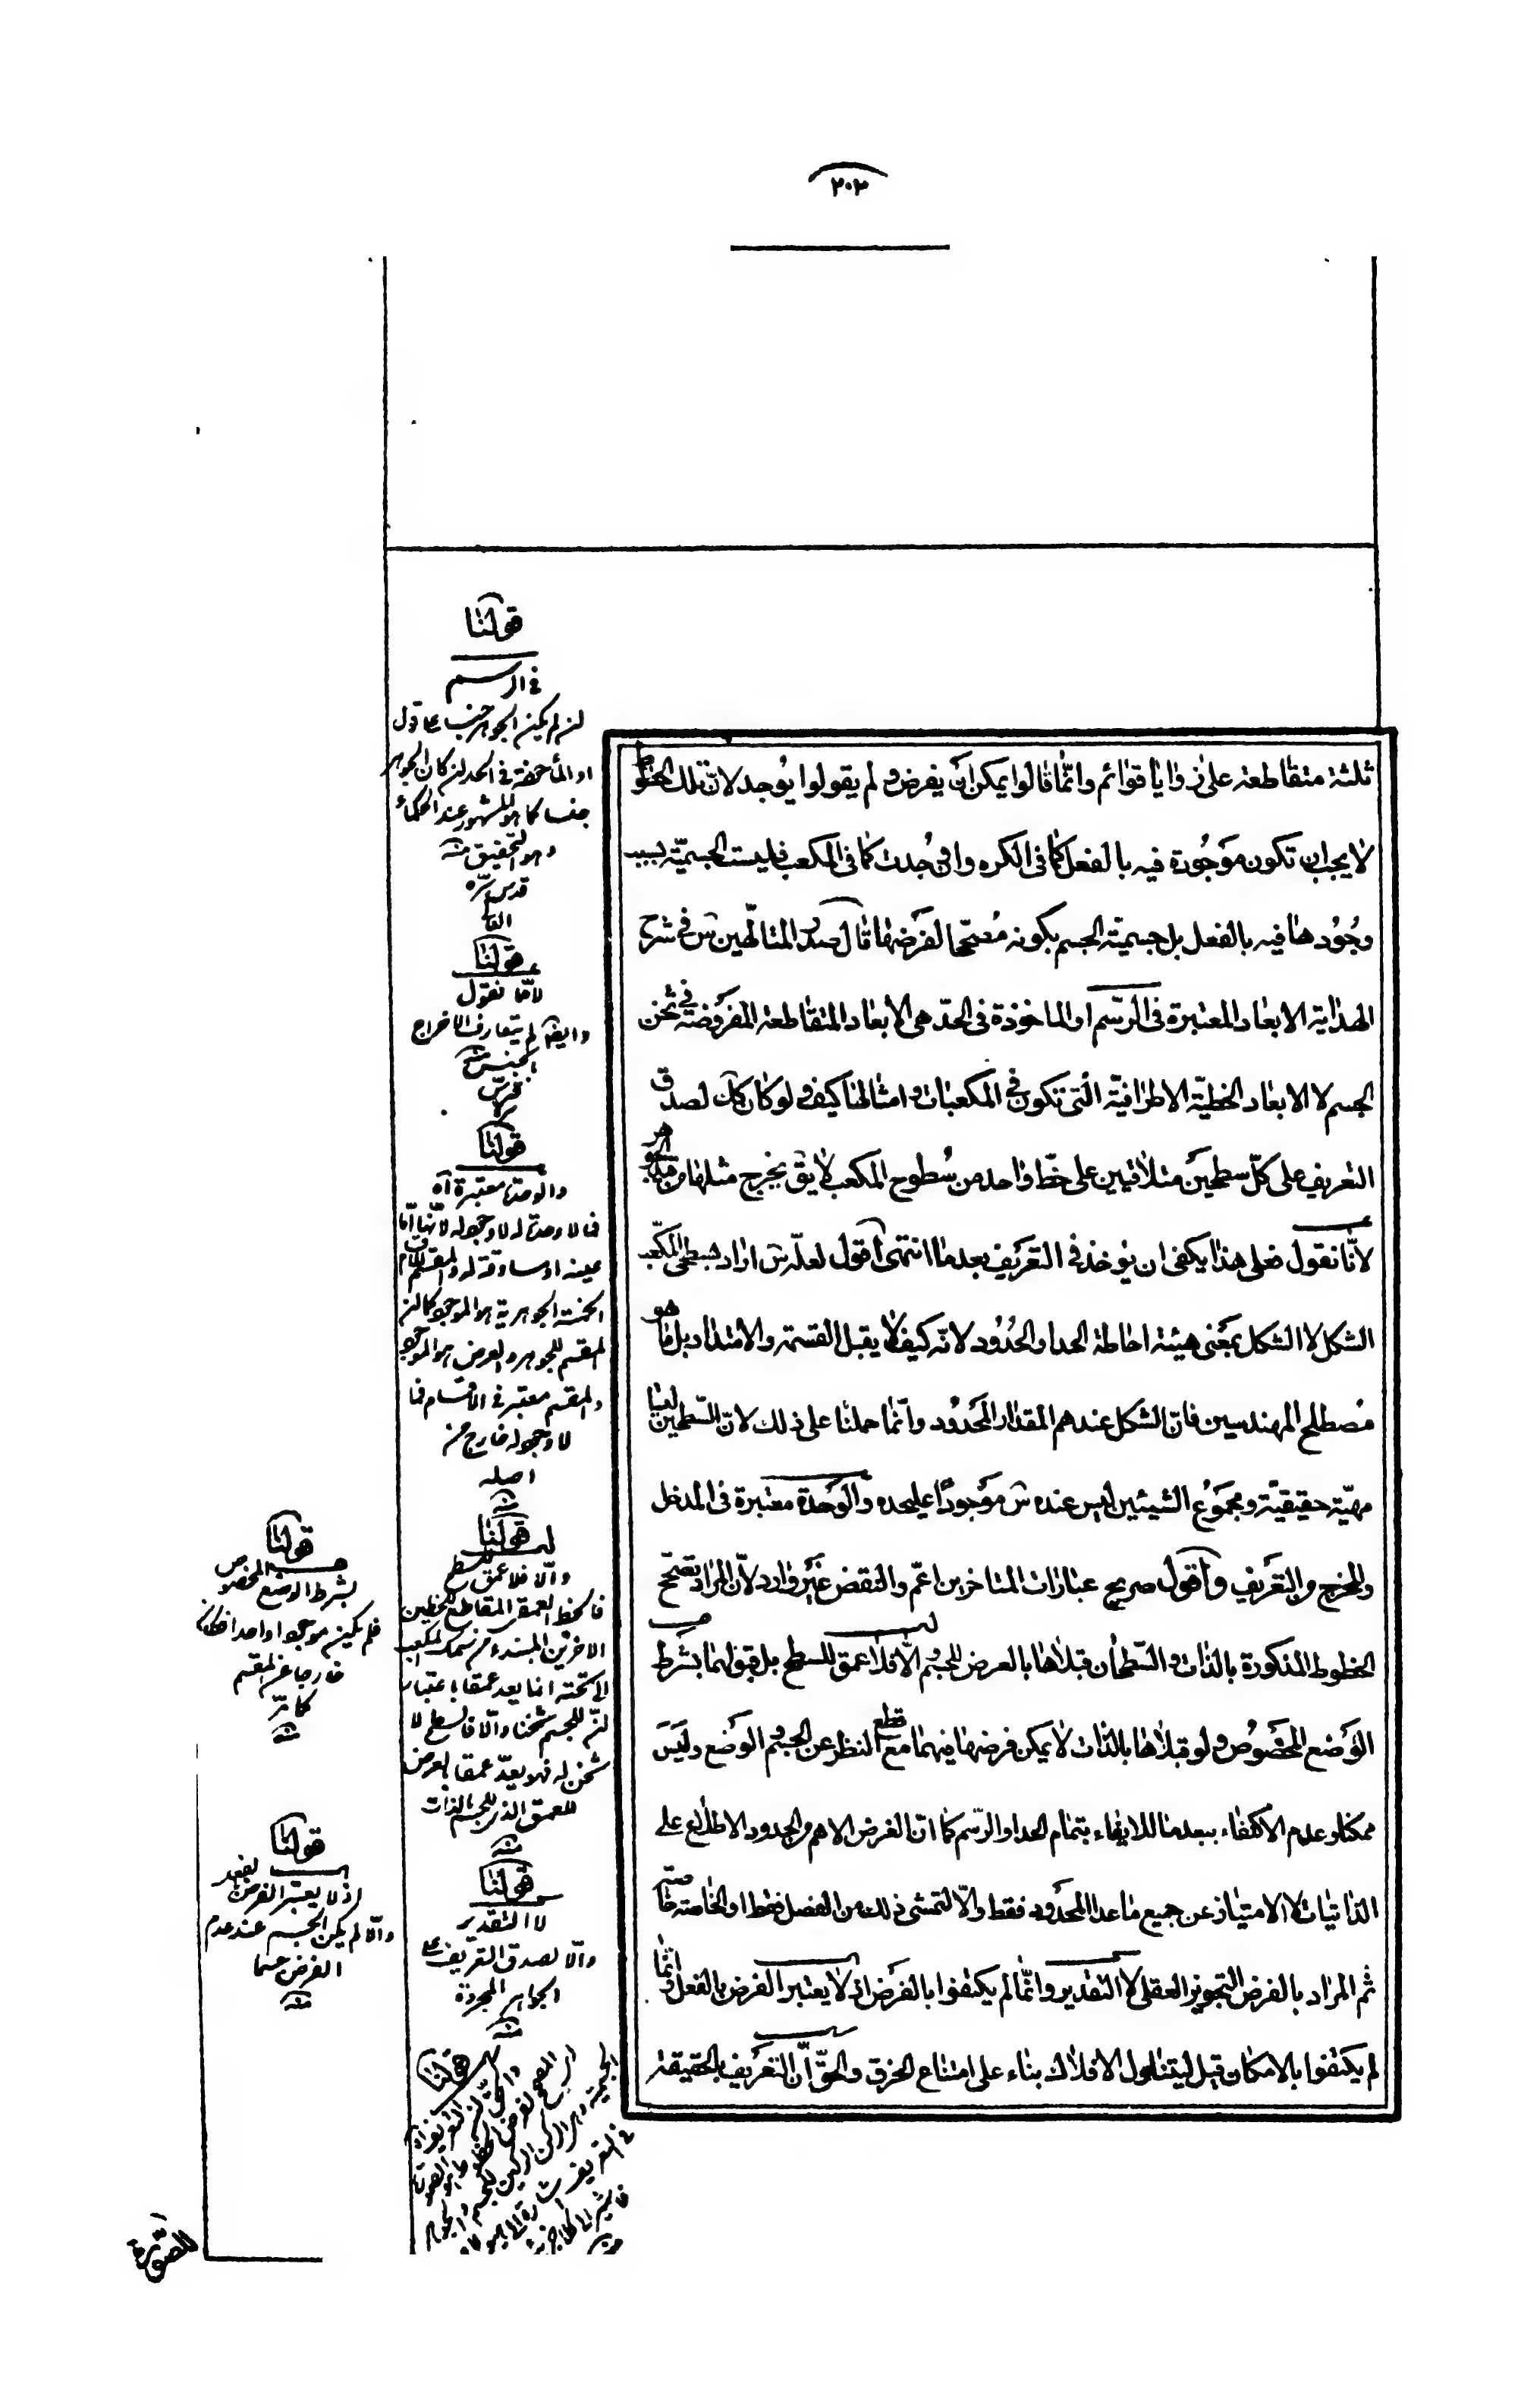 ٢٠٢
ثلثة متقاطعة على زوايا قوائم وانّما قالوا يمكن ان يفرض ولم يقولوا يوجد لانّ تلك الخطوط
لا يجب ان تكون موجودة فيه بالفعل كما فى الكره وان وُجدت كما فى المكعب فليست الجسميّة بسبب
وجُودها فيه بالفعل بل جسميّة الجسم بكونه مُصحّحا لفرضها قال صدر المتالّهين س فى شرح
الهداية الابعاد المعتبرة فى الرّسم او الماخوذة فى الحدّ هى الابعاد المتقاطعة المفروضة فى ثخن
الجسم لا الابعاد الخطيّة الاطرافيّة الّتى تكون فى المكعبات وامثالها كيف ولو كان كك لصدق
التعريف على كلّ سطحين متلاقيين على خطّ واحد من سُطوح المكعب لا يق يخرج مثلها من الجوهر
لانّا نقول فعلى هذا يكفى ان يؤخذ فى التعريف بعد ما انتهى اقول لعلّه س اراد بسطحى المكعّب
الشكل لا الشكل بمعنى هيئة احاطة الحد او الحدُود لانّه كيف لا يقبل القسمة والامتداد بل ما هو
مُصطلح المهندسين فانّ الشكل عندهم المقدار المحدُود وانّما حملنا على ذلك لانّ السّطحين ليسا
مهيّة حقيقيّة ومجموع الشيئين ليس عنده س موجودًا عليحده والوحدة معتبرة فى المدخل
والمخرج والتعريف واقول صريح عبارات المتاخرين اعمّ والنقض غير وارد لانّ المراد تصحّح
الخطوط المذكورة بالذات والسّطحان قبلاها بالعرض للجسم والّا فلا عمق للسطح بل قبولهما بشرط
الوضع المخصُوص ولو قبلاها بالذات لا يمكن فرضها فيهما مع قطع النظر عن الجسم والوضع وليس
ممكنا وعدم الاكتفاء ببعد ما للايفاء بتمام الحد او الرّسم كما انّ الغرض الاهم من الحدود الاطلاع على
الذاتيات لا الامتياز عن جميع ما عدا المحدود فقط والّا لتمشى ذلك من الفصل فقط او الخاصّة خاصّة
ثم المراد بالفرض التجويز العقلى لا التقدير وانّما لم يكتفوا بالفرض اذ لا يعتبر الفرض بالفعل وانّما
لم يكتفوا بالامكان قيل ليتناول الافلاك بناء على امتناع الخرق والحقّ انّ التعريف بالحقيقة
للصّورة
قولنا
فى الرسم
لن لم يكن الجوهر جنسا على قول
او المأخوذة فى الحد لن كان الجوهر
جنسا كما هو المشهور عند الحكماء
وهو التحقيق منه
قدس سرّه
قولنا
لانّا نقول
وايضا لم يتعارف الاخراج
بالجنس منه
قولنا
والوحدة معتبرة آه
فما لا وحدة له لا وجود له لانّها امّا
عينه او مساوقة له والمقسم للاقسام
الخمسة الجوهرية هو الموجود كما لن
المقسم للجوهر والعرض هو الموجود
والمقسم معتبر فى الاقسام فما
لا وجود له خارج من
اصله
منه
قولنا
والّا فلا عمق للسطح
فالخط العمقى المتقاطع للخطين
الاخرين المبتدء من سمك المكعب
الى تحته انما يعد عمقا باعتبار
لنّ للجسم ثخنا والّا فالسطح لا
ثخن له فهو يعدّ عمقا بالعرض
للعمق الذى للجسم بالذات
منه
قولنا
لا التقدير
والّا لصدق التعريف على
الجواهر المجردة
منه
قولنا
بشرط الوضع المخصوص
فلم يكن موجودا واحدا فكان
خارجا عن المقسم
كما مرّ
منه
قولنا
اذ لا يعتبر الفرض بالفعل
والّا لم يكن الجسم عند عدم
الفرض جسما
منه
قولنا